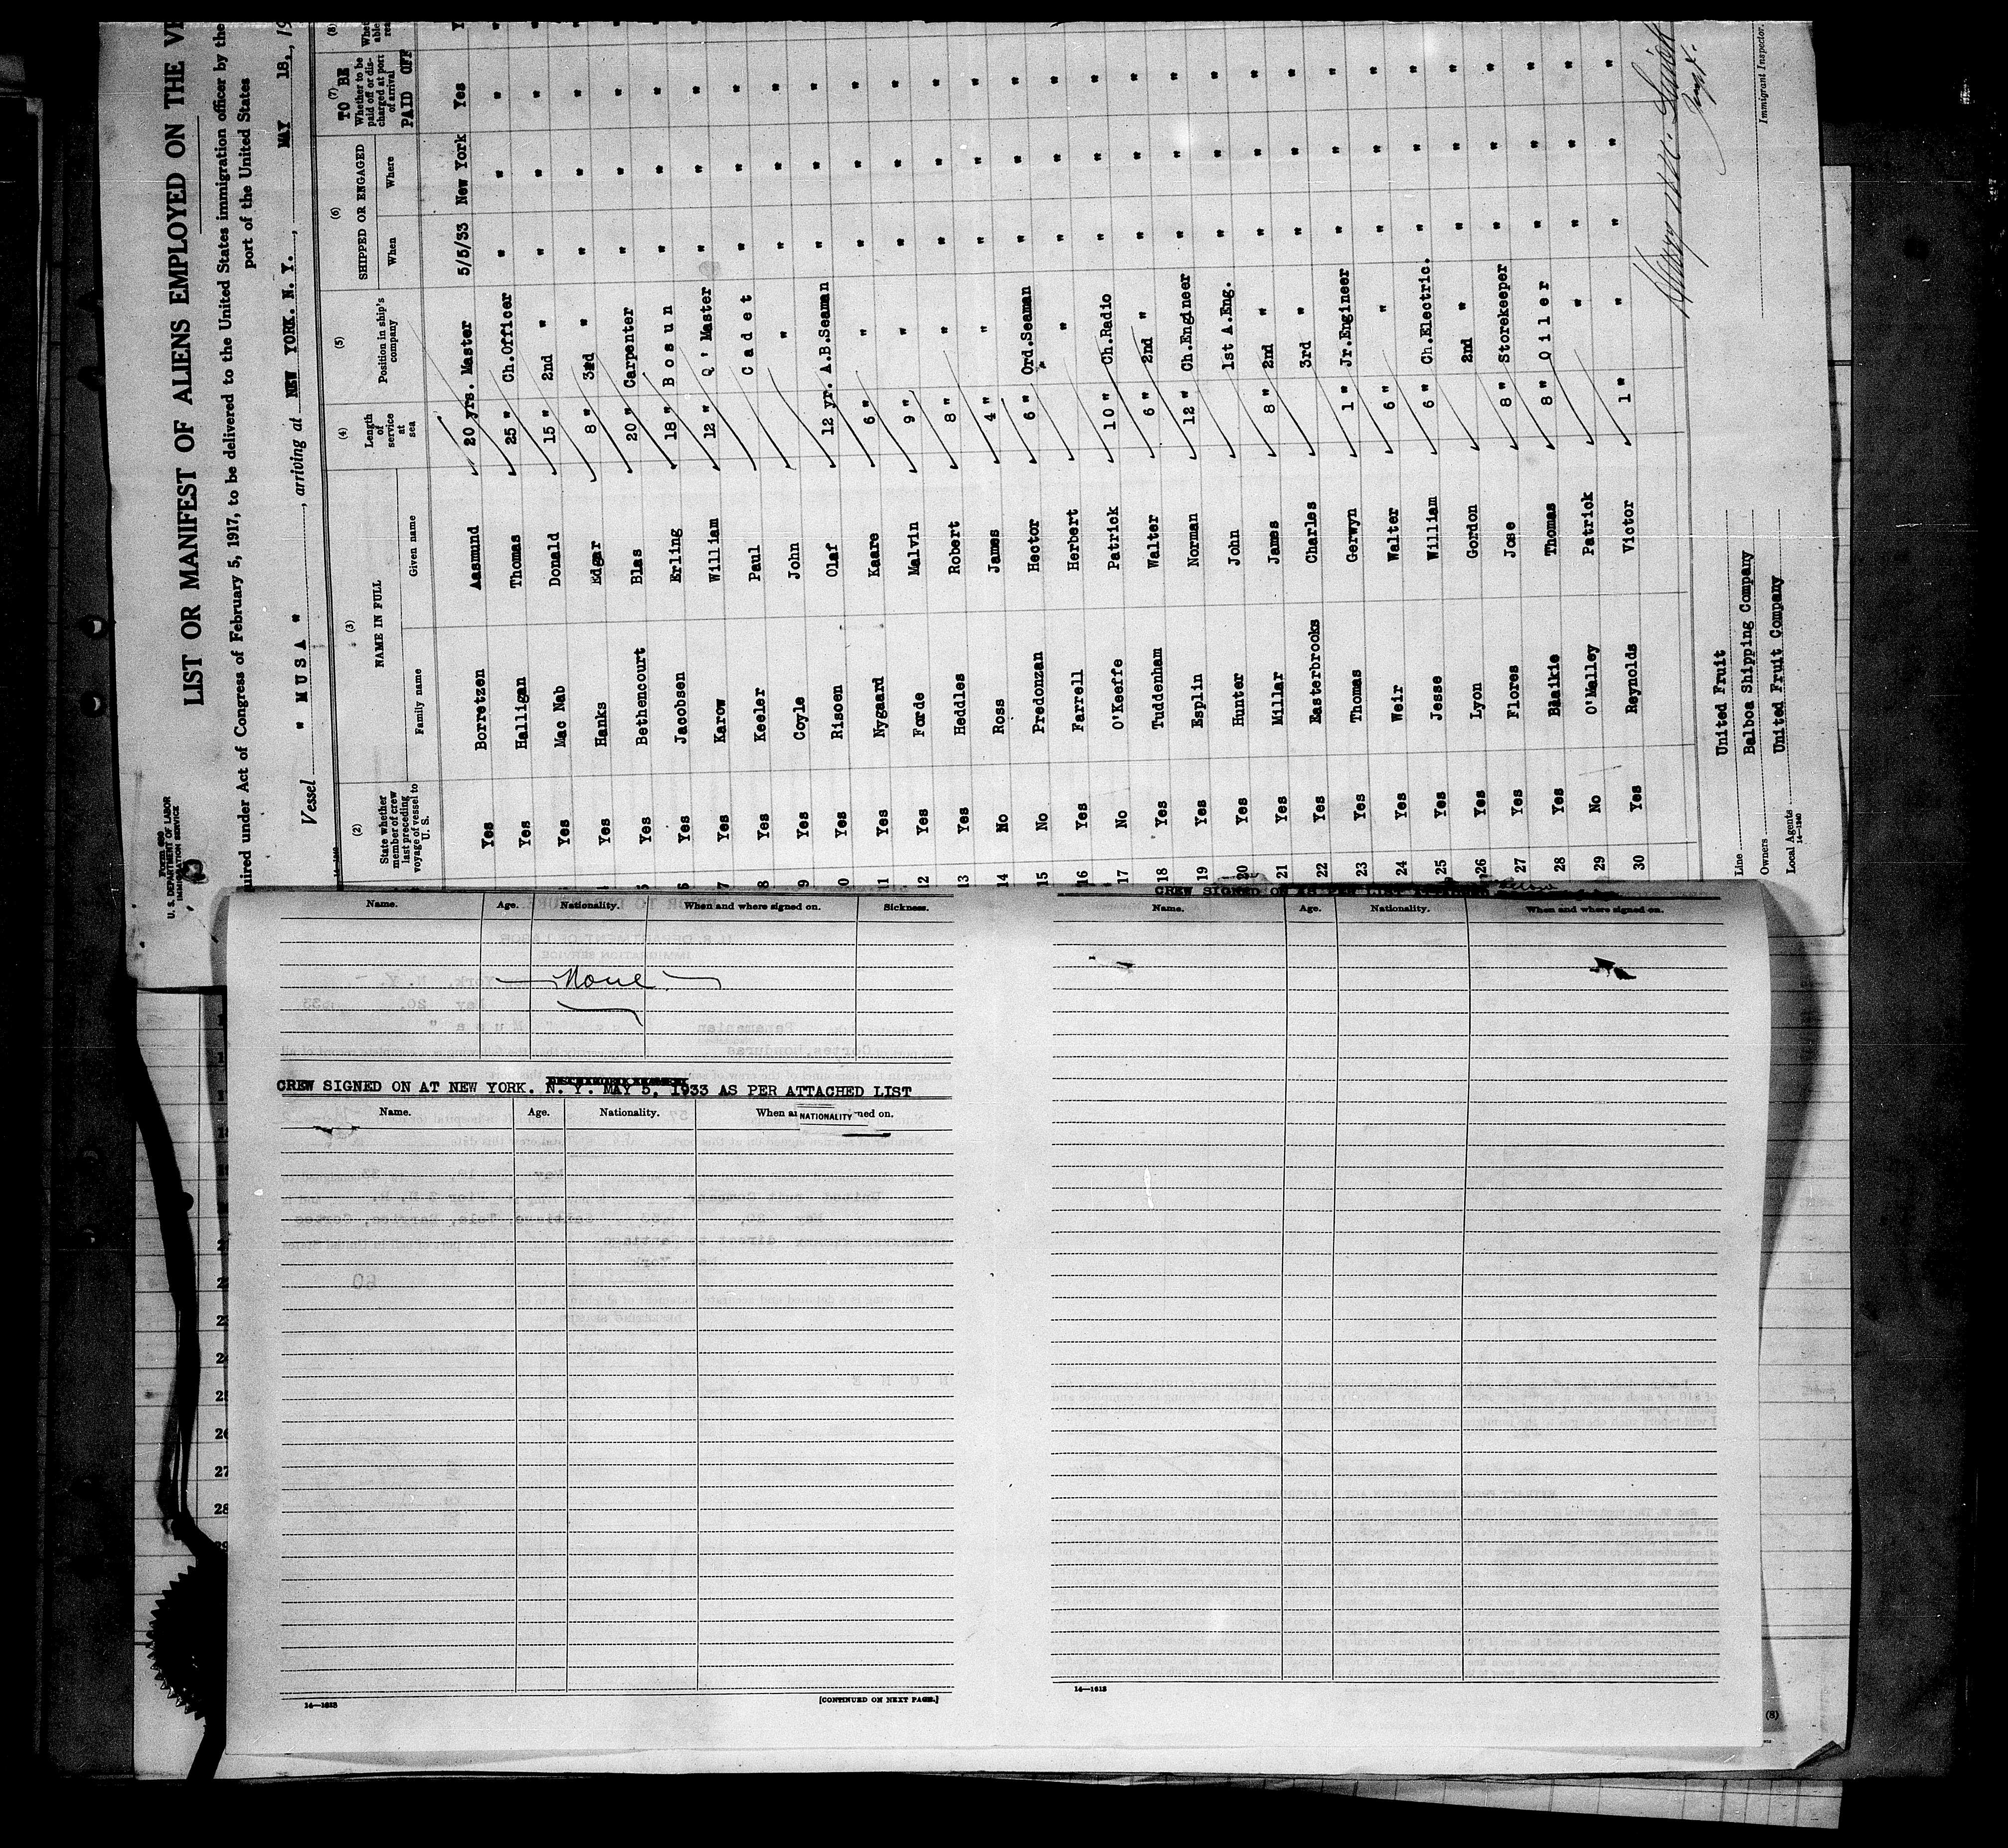 Form 689
U. S. DEPARTMENT OF LABOR
IMMIGRATION SERVICE
LIST OR MANIFEST OF ALIENS EMPLOYED ON THE
uired under Act of Congress of February 5, 1917, to be delivered to the United States immigration officer by the
port of the United States
Vessel " M U S A " , arriving at NEW YORK. N. Y. , MAY 18, 19
(2) (3) (4) (5) (6) (7) (8)
State whether member of crew last preceding voyage of vessel to U. S. NAME IN FULL Length of service at sea Position in ship's company SHIPPED OR ENGAGED TO BE Whether to be paid off or discharged at port of arrival PAID OFF
Family name Given name When Where
Yes Borretzen Aasmund 20 yrs. Master 5/5/33 New York Yes
Yes Halligan Thomas 25 " Ch.Officer " " "
Yes Mac Nab Donald 15 " 2nd " " " "
Yes Hanks Edgar 8 " 3rd " " " "
Yes Bethencourt Blas 20 " Carpenter " " "
6 Yes Jacobsen Erling 18 " B o s u n " " "
7 Yes Karow William 12 " Q ' Master " " "
8 Yes Keeler Paul C a d e t " " "
9 Yes Coyle John " " " "
0 Yes Risoen Olaf 12 yr. A.B.Seaman " " "
11 Yes Nygaard Kaare 6 " " " " "
12 Yes Forde Malvin 9 " " " " "
13 Yes Heddles Robert 8 " " " " "
14 No Ross James 4 " " " " "
15 No Predonzan Hector 6 " Ord.Seaman " " "
16 Yes Farrell Herbert " " " "
17 No O'Keeffe Patrick 10 " Ch.Radio " " "
18 Yes Tuddenham Walter 6 " 2nd " " " "
19 Yes Esplin Norman 12 " Ch.Engineer " " "
20 Yes Hunter John 1st A.Eng. " " "
21 Yes Millar James 8 " 2nd " " " "
22 Yes Easterbrooks Charles 3rd " " " "
23 Yes Thomas Gerwyn 1 " Jr.Engineer " " "
24 Yes Weir Walter 6 " " " " "
25 Yes Jesse William 6 " Ch.Electric. " " "
26 Yes Lyon Gordon 2nd " " " "
27 Yes Flores Jose 8 " Storekeeper " " "
28 Yes Blaikie Thomas 8 " O i l e r " " "
29 No O'Malley Patrick " " " "
30 Yes Reynolds Victor 1 " " " " "
Line United Fruit
Owners Balboa Shipping Company
Local Agents United Fruit Company
14—1240
Immigrant Inspector.
Name. Age. Nationality. When and where signed on. Sickness.
None
CREW SIGNED ON AT NEW YORK. N. Y. MAY 5, 1933 AS PER ATTACHED LIST
Name. Age. Nationality. When a ned on.
NATIONALITY
14—1613
[CONTINUED ON NEXT PAGE.]
CREW SIGNED ON AS PER LIST
Name. Age. Nationality. When and where signed on.
14—1613
(8)
2
24
25
26
27
28